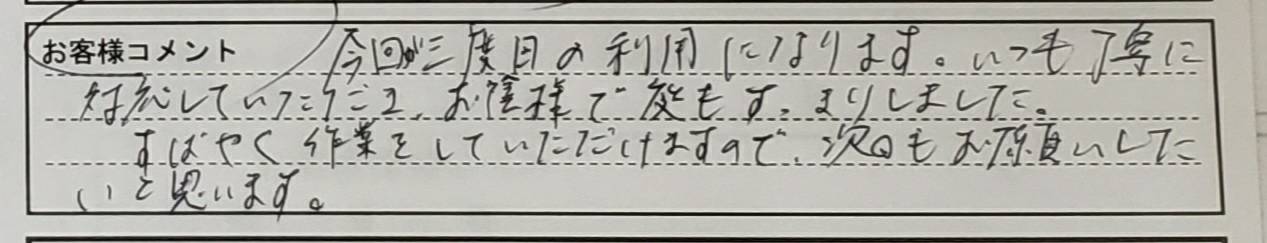 お客様コメント 今回が三度目の利用になります。いつも丁寧に
対応していただき、お陰様で庭もすっきりしました。
すばやく作業をしていただけますので、次回もお願いした
いと思います。